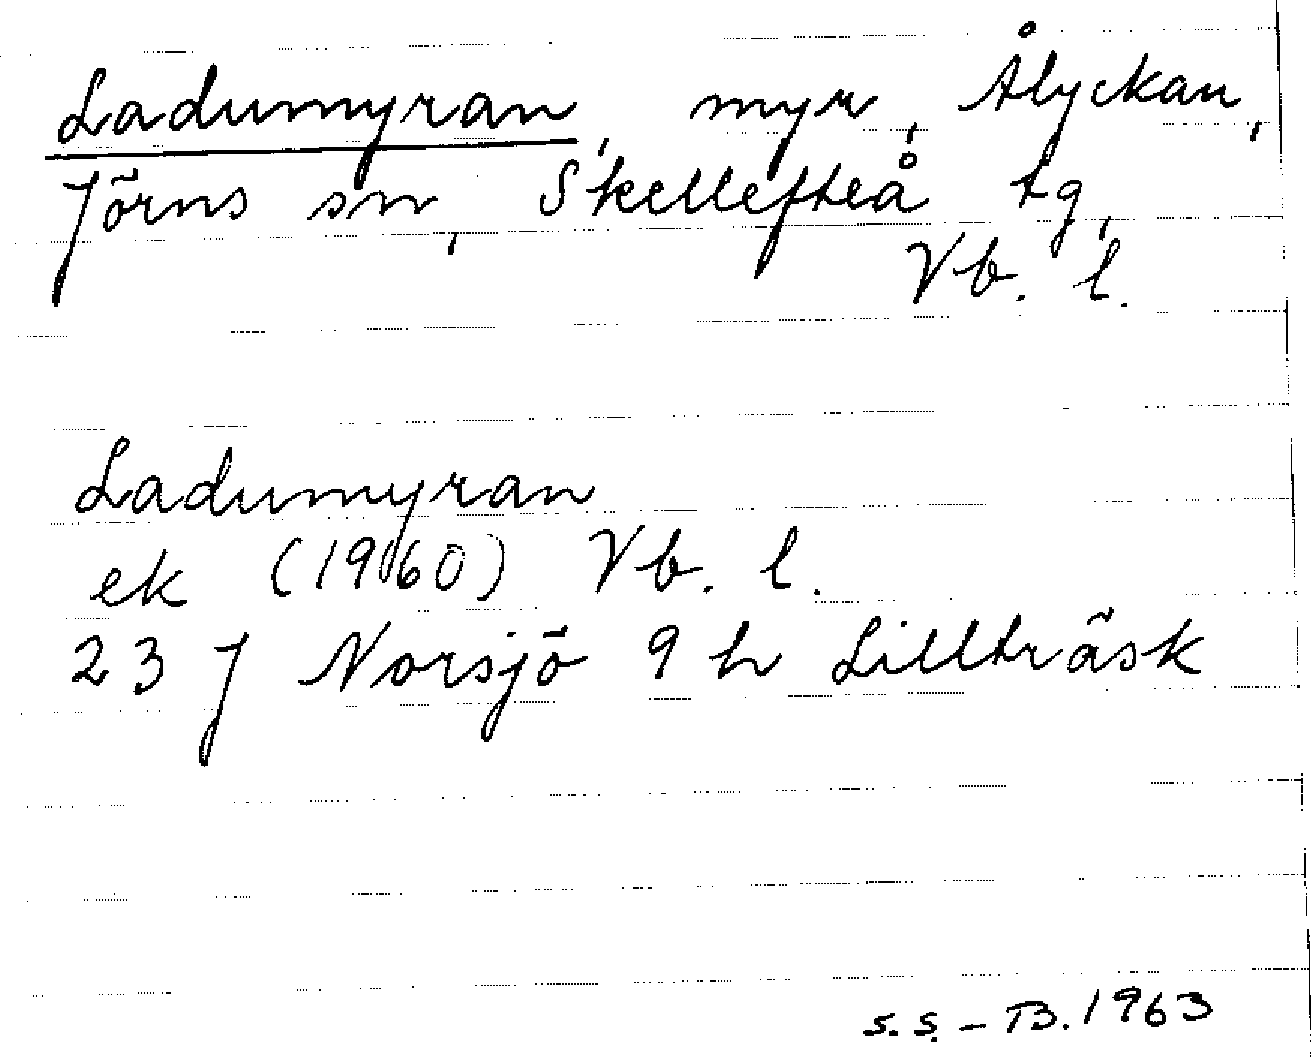 Ladumyran, myr, Ålyckan,
Jörns sn, Skellefteå tg,
Vb. l.
Ladumyran
ek (1960) Vb. l.
23 J Norsjö 9 h Lillträsk
S. S. - TB. 1963